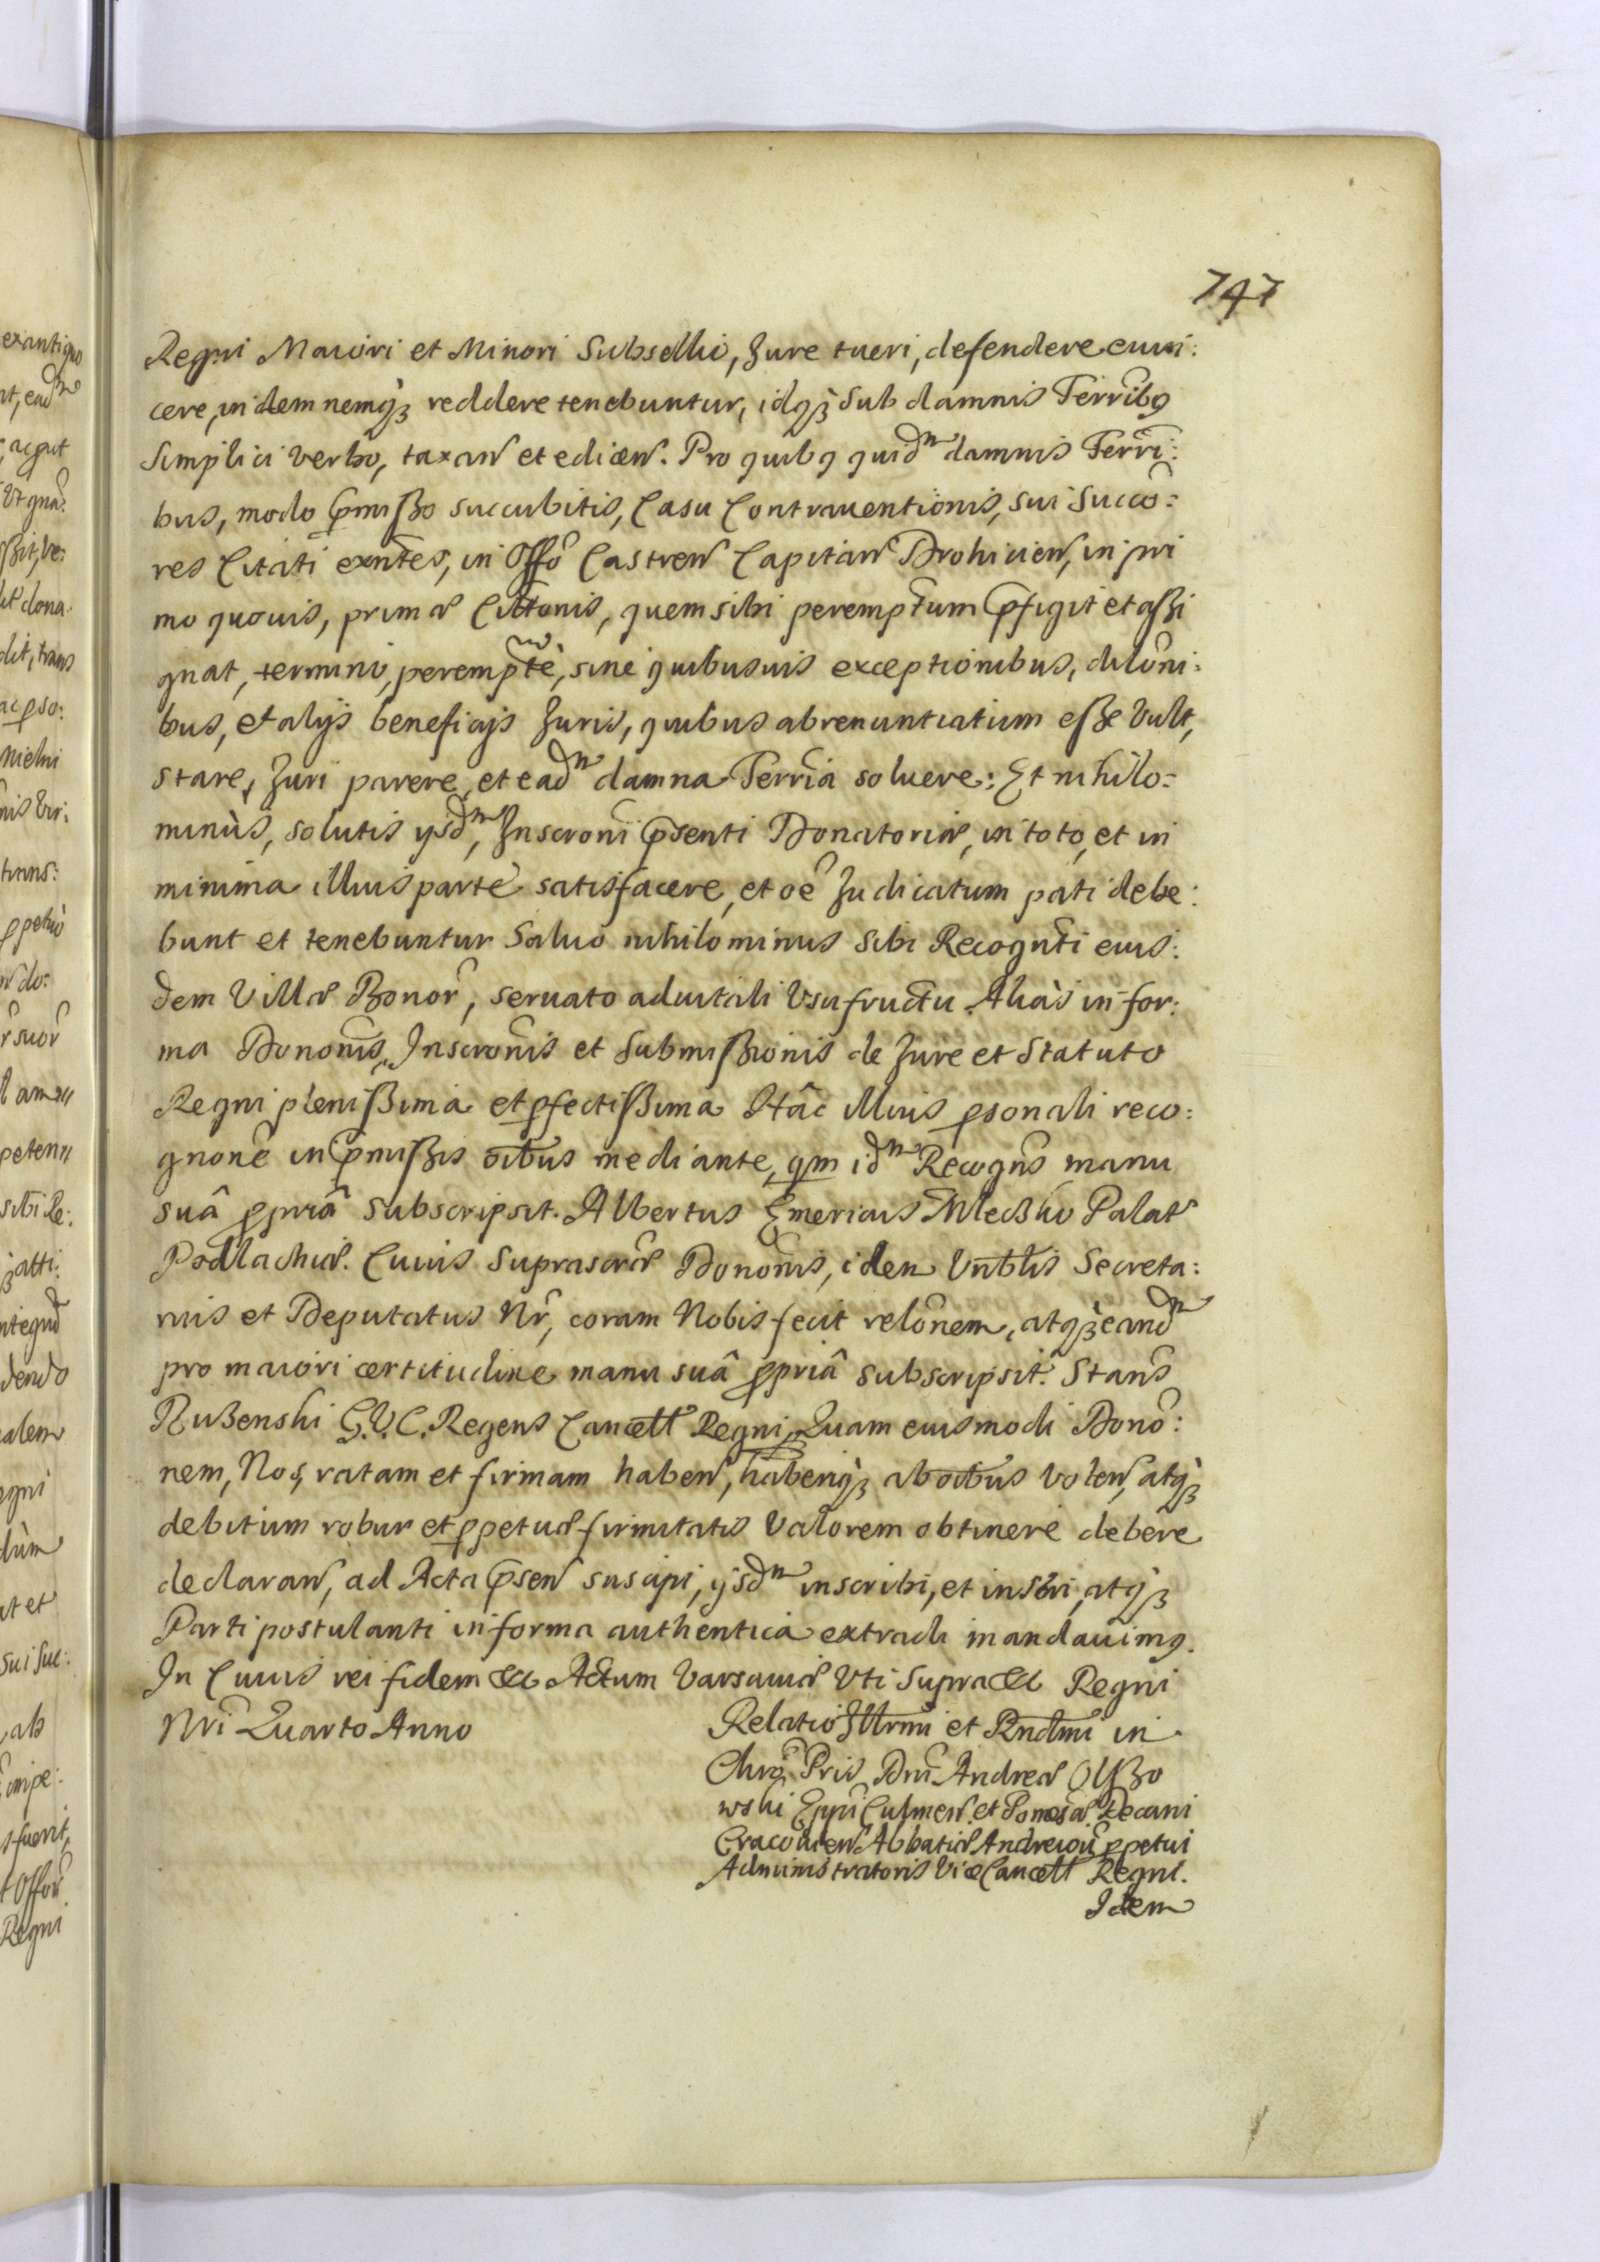 747
Regni Maiori et Minori Subsellio, Jure tueri, defendere euin:
cere, indemnemq3 reddere tenebuntur, idq3 Sub damnis Terrībq
Simplici Verbo, taxan et edicen. Pro quibq quidm damnis Terrī:
bus, modo p̄mißo succubitis, Casu Contrauentionis, sui Succo:
res Citati exn̄tes, in Offō Castren Capitan Drohicien, in pri
mo quouis, primæ Citt̄onis, quem sibi perempt̄um p̄figit et aßi
gnat, termino, perempt̄e, sine quibusuis exceptionibus, dilōni:
bus, et alijs beneficijs Juris, quibus abrenuntiatum eße Vult,
stare, Juri parere, et eadm damna Terrīa soluere: Et nihilo:
minùs, solutis ysdm, Inscronī p̄senti Donatoriæ, in toto, et in
minima illius parte satisfacere, et oē Judicatum pati debe:
bunt et tenebuntur Saluo nihilominus Sibi Recogn̄ti eius:
dem Villæ Bonor̄, seruato aduitali Vsufructu. Aliàs in for:
ma Donōnis, Inscrōnis et Submißionis de Jure et Statuto
Regni plenißima et p̱fectißima Hâc illius p̱sonali reco:
gnonē in p̄mißis oībus mediante, qm idm Recogn̄s manu
suâ ꝓpriâ subscripsit. Albertus Emericus Mleczko Palat
Podlachiæ. Cuius suprascr̄æ Donōnis, idem Vrb̄lis Secreta:
rius et Deputatus Nr̄, coram Nobis fecit relōnem, atq3 eandm
pro maiori certitudine manu suâ ꝓpriâ subscripsit. Stan̄s
Rußenski G. V. C. Regens Cancell Regni. Quam eiusmodi Donō:
nem, Nos, ratam et firmam haben, haberiq3 ab oībus Volen, atq3
debitum robur et p̱petuæ firmitatis Valorem obtinere debere
declaran, ad Acta p̄sen suscipi, ysdm inscribi, et inseri, atq3
Parti postulanti in forma authentica extradi mandauimq.
In Cuius rei fidem &c Actum Varsauiæ Vti Supra &c Regni
Nrī Quarto Anno
Relatio Illr̄mi et Rnd̄mi in
Chrō Pris Dn̄i Andreæ Olßo
wski Ep̄pi Culmen et Pomesan Decani
Cracouien Abbatiæ Andreiouien p̱petui
Administratoris Vice Cancell Regni.
Idem